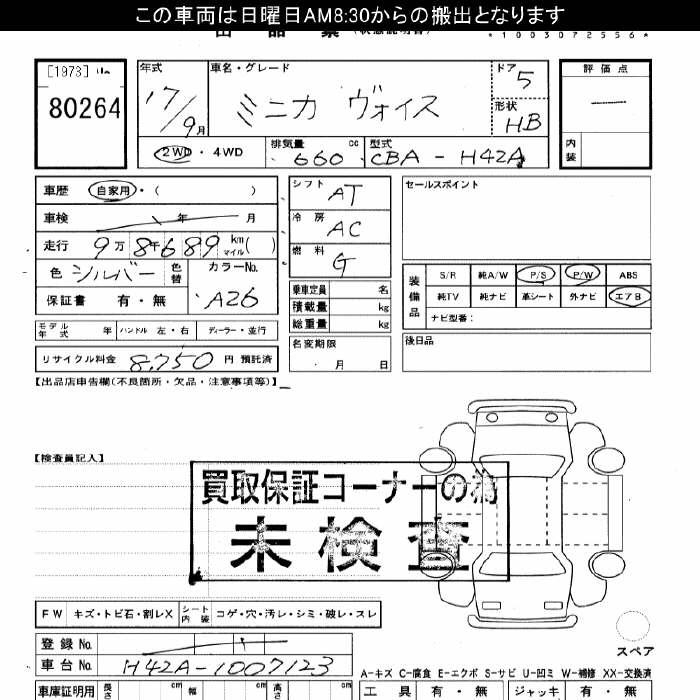 この車両は日曜日AM8:30からの搬出となります
*1003072556*
[1973]
80264
年式
17/9月
車名・グレード
ミニカ ヴォイス
ドア
5
形状
HB
評価点
内装
2WD・4WD
排気量 660 cc
型式 CBA-H42A
車歴 自家用・( )
車検 年 月
走行 9万8千689 km マイル ( )
色 シルバー 色替
カラーNo. A26
保証書 有・無
モデル年式 年 ハンドル 左・右 ディーラー・並行
リサイクル料金 8,750 円 預託済
シフト AT
冷房 AC
燃料 G
乗車定員 名
積載量 kg
総重量 kg
名変期限
月 日
セールスポイント
装備品
S/R 純A/W P/S P/W ABS
純TV 純ナビ 革シート 外ナビ エアB
ナビ型番:
後日品
【出品店申告欄(不良箇所・欠品・注意事項等)】
【検査員記入】
買取保証コーナーの為
未検査
FW キズ・トビ石・割レX シート内装 コゲ・穴・汚レ・シミ・破レ・スレ
スペア
登録No.
車台No. H42A-1007123
A-キズ C-腐食 E-エクボ S-サビ U-凹ミ W-補修 XX-交換済
車庫証明用 長さ cm 幅 cm 高さ cm
工具 有・無 ジャッキ 有・無